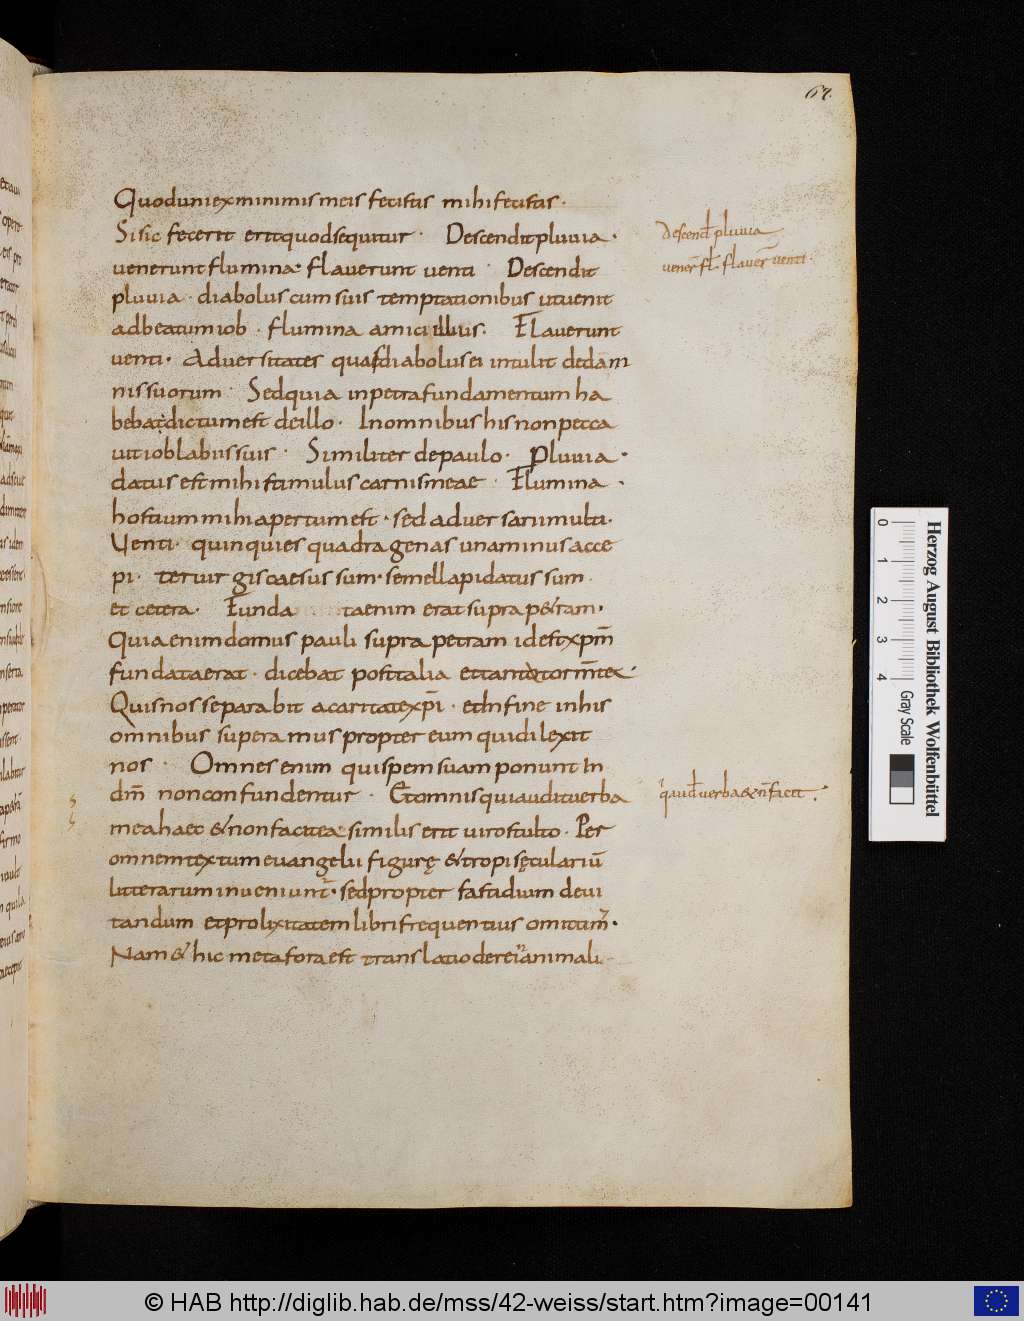 67.
Quod uni ex minimis meis fecistis mihi fecistis·
Si sic fecerit erit quod sequitur· Descendit pluvia·
venerunt flumina· flaverunt venti· Descendit
pluvia· diabolus cum suis temptationibus ut venit
ad beatum iob· flumina amici illius· Flaverunt
venti· Adversitates quas diabolus ei intulit de dam
nis suorum· Sed quia in petra fundamentum ha
bebat; dictum est de illo· In omnibus his non pecca
vit iob labiis suis· Similiter de paulo· Pluvia·
datus est mihi stimulus carnis meae· Flumina·
hostium mihi apertum est· sed adversarii multi·
Venti· quinquies quadragenas una minus acce
pi· ter virgis caesus sum· semel lapidatus sum·
et cetera· Funda ta enim erat supra petram·
Quia enim domus pauli supra petram id est xpm̄
fundata erat· dicebat post talia et tanta torm̄ta·
Quis nos separabit a caritate xp̄i· et in fine in his
omnibus superamus propter eum qui dilexit
nos· Omnes enim qui spem suam ponunt in
dm̄ non confundentur· Et omnis qui audit verba
mea haec & non facit ea similis erit viro stulto· Per
omnem textum euangelii figurę & tropi sęculariū
litterarum inveniunt᷑· sed propter fastidium devi
tandum et prolixitatem libri frequentius omittim᷑·
Nam & hic metafora est translatio de re in animali·
descend̄ pluvia
vener̄ fl̄· flaver̄ venti·
q̇ aud̄ verba & n̄ facit·
Herzog August Bibliothek Wolfenbüttel
0 1 2 3 4
Gray Scale
© HAB http://diglib.hab.de/mss/42-weiss/start.htm?image=00141